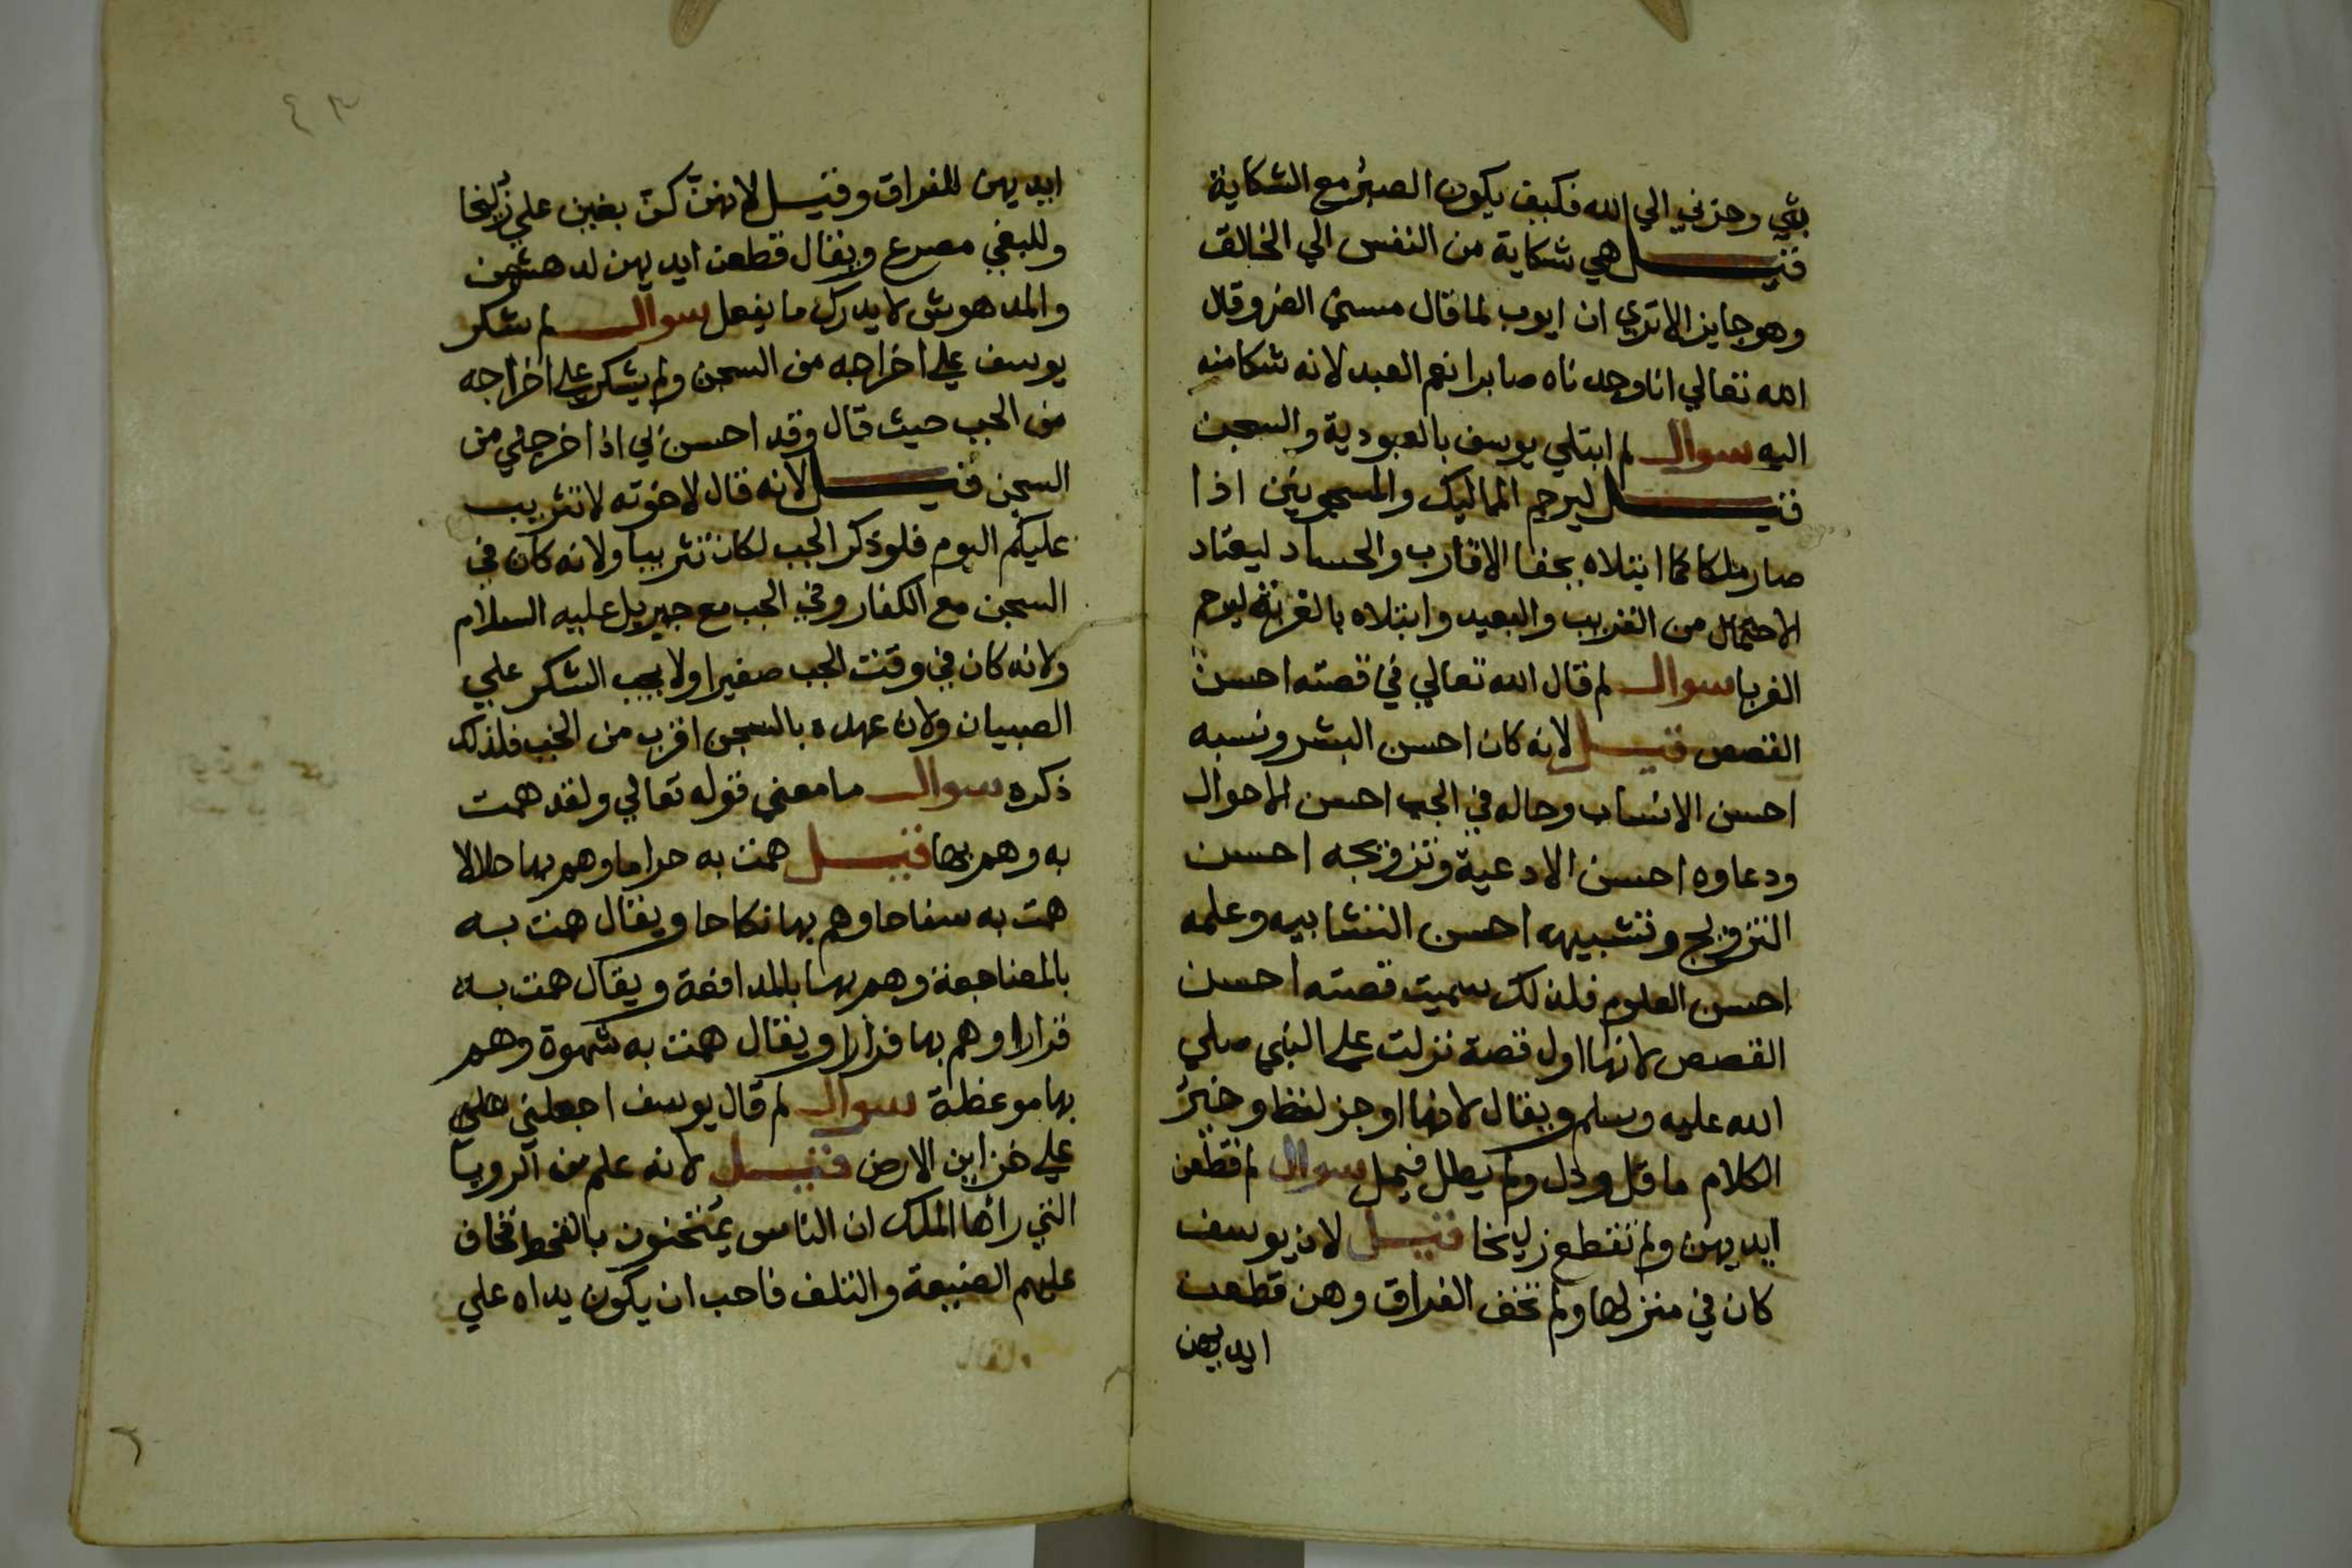 بثي وحزني الي الله فكيف يكون الصبر مع الشكاية
قيل هي شكاية من النفس الي الخالق
وهو جايز الا تري ان ايوب لما قال مسني الضر وقال
الله تعالي انا وجدناه صابرا نعم العبد لانه شكا منه
اليه سوال لم ابتلي يوسف بالعبودية والسجن
قيل ليرحم المماليك والمسجونين اذا
صار ملكا كما ابتلاه بجفا الاقارب والحساد ليعتاد
الاحتمال من القريب والبعيد وابتلاه بالغربة ليرحم
الغربا سوال لم قال الله تعالي في قصته احسن
القصص قيل لانه كان احسن البشر ونسبه
احسن الانساب وحاله في الجب احسن الاحوال
ودعاوه احسن الادعية وتزويجه احسن
التزويج وتشبيهه احسن التشابيه وعلمه
احسن العلوم فلذلك سميت قصته احسن
القصص لانها اول قصة نزلت علي النبي صلي
الله عليه وسلم ويقال لانها اوجز لفظا وخير
الكلام ما قل ودل ولم يطل فيمل سوال لم قطعن
ايديهن ولم تقطع زليخا قيل لان يوسف
كان في منزلها ولم تخف الفراق وهن قطعن
ايديهن
٤٣
ايديهن للفراق وقيل لانهن كن بغين علي زليخا
وللبغي مصرع ويقال قطعن ايديهن لدهشهن
والمدهوش لا يدرك ما يفعل سوال لم شكر
يوسف علي اخراجه من السجن ولم يشكر علي اخراجه
من الجب حيث قال وقد احسن بي اذا اخرجني من
السجن قيل لانه قال لاخوته لا تثريب
عليكم اليوم فلو ذكر الجب لكان تثريبا ولانه كان في
السجن مع الكفار وفي الجب مع جبريل عليه السلام
ولانه كان في وقت الجب صغيرا ولا يجب الشكر علي
الصبيان ولان عهده بالسجن اقرب من الجب فلذلك
ذكره سوال ما معني قوله تعالي ولقد همت
به وهم بها قيل همت به حراما وهم بها حلالا
همت به سفاحا وهم بها نكاحا ويقال همت به
بالمضاجعة وهم بها بالمدافعة ويقال همت به
قرارا وهم بها فرارا ويقال همت به شهوة وهم
بها موعظة سوال لم قال يوسف اجعلني علي
علي خزاين الارض قيل لانه علم من الرويا
التي رآها الملك ان الناس يمتحنون بالقحط فخاف
عليهم الضيعة والتلف فاحب ان يكون يداه علي